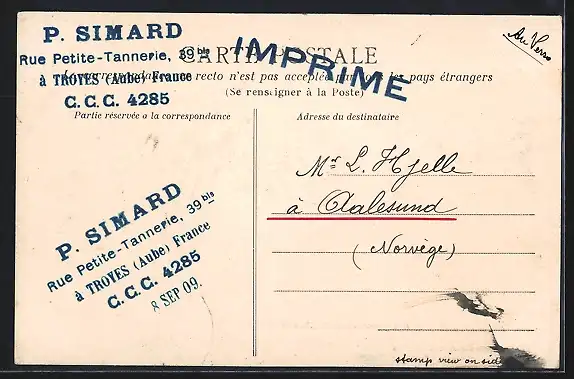 P. SIMARD
Rue Petite-Tannerie, 39 bis
à TROYES (Aube) France
C.C.C. 4285
CARTE POSTALE
IMPRIMÉ
Au Verso
recto n'est pas accepté pays étrangers
(Se renseigner à la Poste)
Partie réservée a la correspondance
Adresse du destinataire
Mr L. Hjelle
à Aalesund
(Norvège)
P. SIMARD
Rue Petite-Tannerie, 39 bis
à TROYES (Aube) France
C.C.C. 4285
8 SEP 09.
stamp view on side